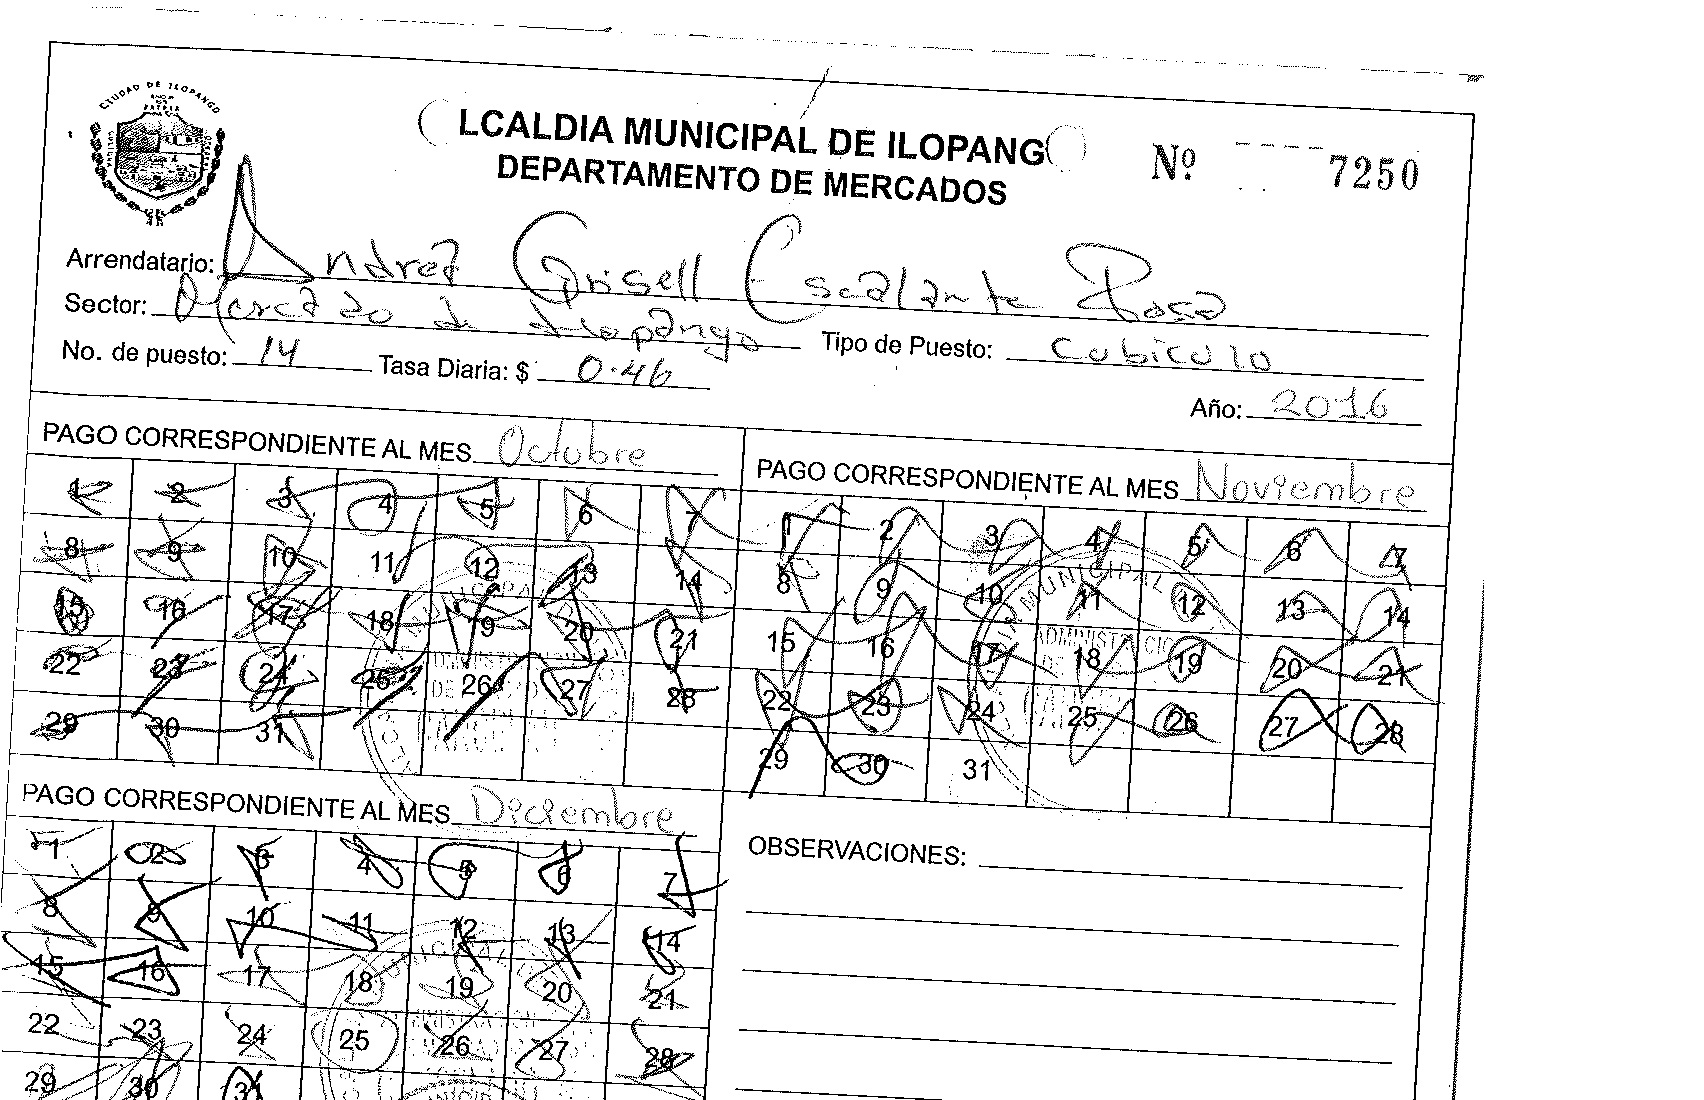 CIUDAD DE ILOPANGO
LCALDIA MUNICIPAL DE ILOPANG
DEPARTAMENTO DE MERCADOS
Nº 7250
Arrendatario: Andrea Grisell Escalante Rosa
Sector: Mercado de Ilopango Tipo de Puesto: Cubiculo
No. de puesto: 14 Tasa Diaria: $ 0.46
Año: 2016
PAGO CORRESPONDIENTE AL MES Octubre
1 2 3 4 5 6 7
8 9 10 11 12 13 14
15 16 17 18 19 20 21
22 23 24 25 26 27 28
29 30 31
PAGO CORRESPONDIENTE AL MES Noviembre
1 2 3 4 5 6 7
8 9 10 11 12 13 14
15 16 17 18 19 20 21
22 23 24 25 26 27 28
29 30 31
PAGO CORRESPONDIENTE AL MES Diciembre
1 2 3 4 5 6 7
8 9 10 11 12 13 14
15 16 17 18 19 20 21
22 23 24 25 26 27 28
29 30 31
OBSERVACIONES: